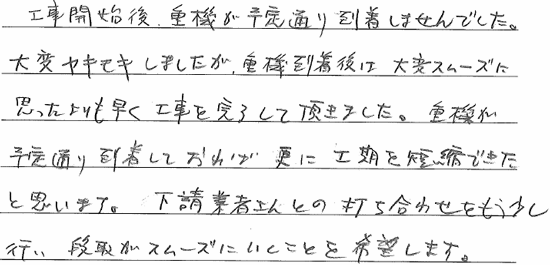 工事開始後、重機が予定通り到着しませんでした。
大変ヤキモキしましたが、重機到着後は大変スムーズに
思ったよりも早く工事を完了して頂きました。重機が
予定通り到着しておれば更に工期を短縮できた
と思います。下請業者さんとの打ち合わせをもう少し
行い段取がスムーズにいくことを希望します。